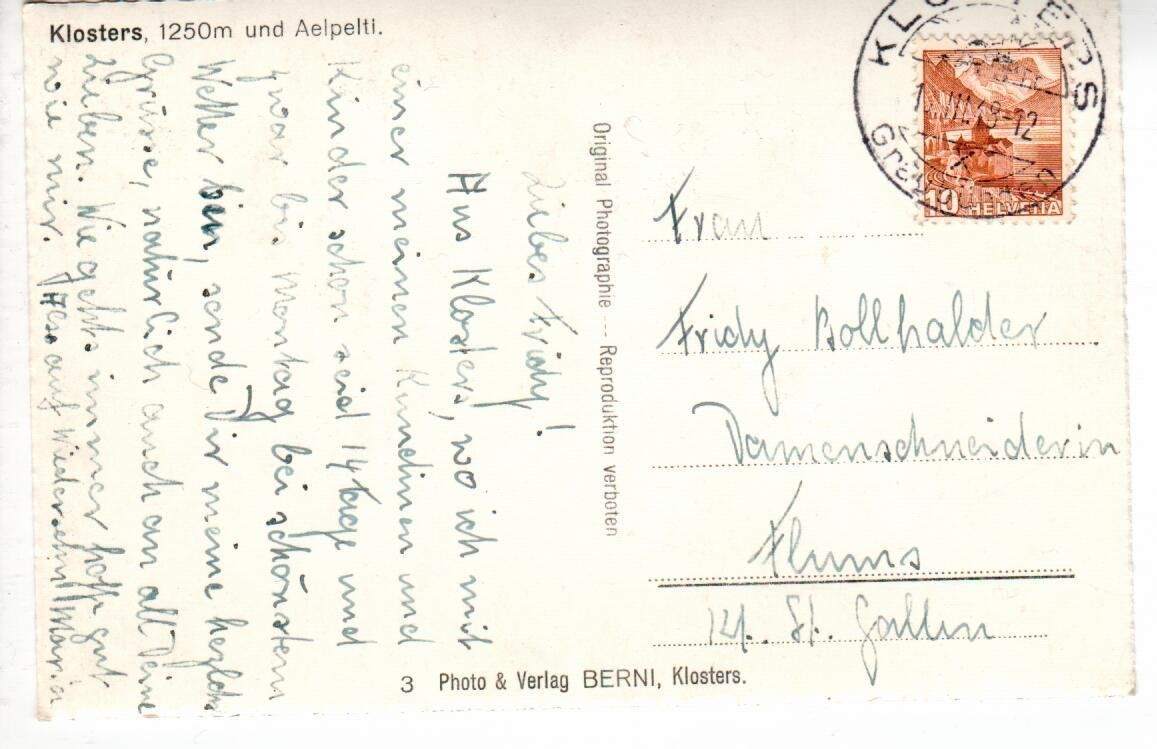 Klosters, 1250m und Aelpelti.
Liebes Fridy!
Aus Klosters, wo ich mit
einer meinen Kundinen und
Kinder schon seid 14 Tage und
zwar bis Montag bei schönstem
Wetter bin, sende Dir meine herzlichs
Grüsse, natürlich auch an all Deine
Lieben. Wie geht's immer hoffe gut
wie mir. Also auf Wiedersehn Maria
Original Photographie --- Reproduktion verboten
KLOSTERS
VII.48-12
HELVETIA
10
Frau
Fridy Bollhalder
Damenschneiderin
Flums
Kt. St. Gallen
3 Photo & Verlag BERNI, Klosters.